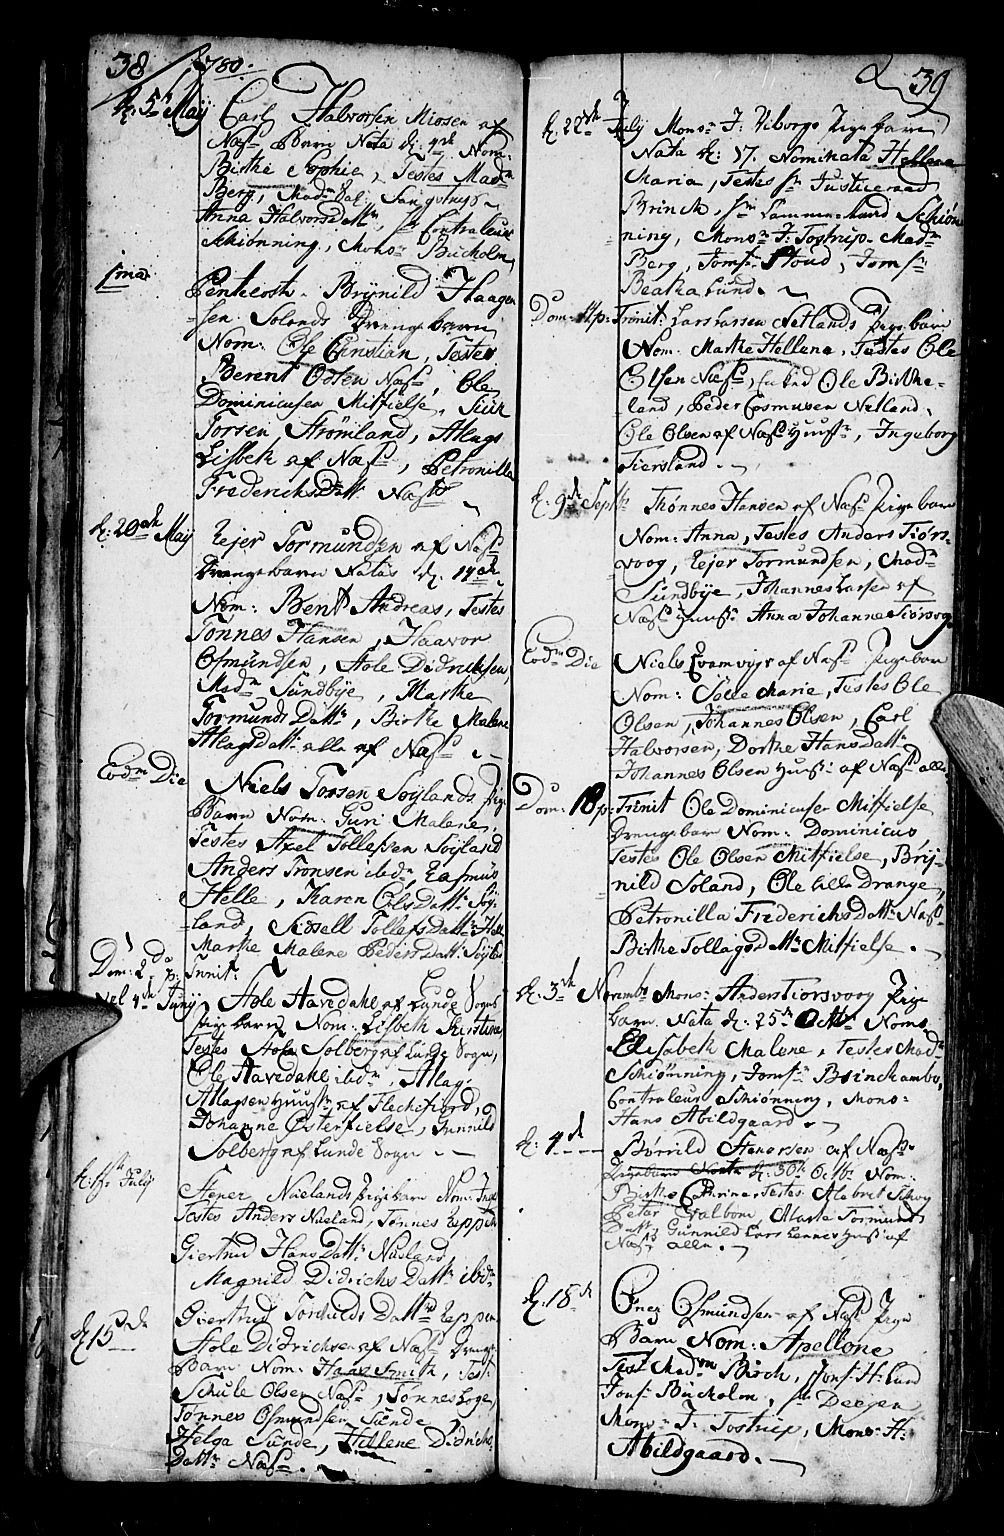 38 1780.
d. 5te Maij Carl Halvorsen Miosen af
Næss Barn Nata d. 4de, Nom:
Birthe Sophie, Testes Madm
Berg, Madm
Anna Halvorsdattr, Sr Controleur
Schiönning, Monsr Bucholm,
1ma
Pentecosth. Brÿnild Haagen
sen Solands Drengebarn
Nom: Ole Christian, Testes
Berent Odsen Næss, Ole
Dominicusen Mitfielse, Siur
Torsen Strömland, Atlags
Lisbeth af Næss, Petronilla
Frederichsdattr Næss
d. 20de Maij Eejer Tormundsen af Næss
Drengebarn Natus d. 14de
Nom: Bent Andreas, Testes
Tonnes Hansen, Haavor
Osmundsen, Aole Didrichsen,
Madm Sundbÿe, Marthe
Tormunds Dattr, Birthe Malene
Atlagsdattr alle af Næss
Eodm Die Niels Torsen Soÿlands Pige
Barn Nom: Guri Malene,
Testes Axel Tollefsen Soÿland
Anders Tronsen ibdm, Rasmus
Helle, Karen Olsdattr Soÿ-
land, Sissell Tollefsdattr Helle
Marthe Malene Pedersdattr Soÿla
Dom: 2da p: Trinit:
vel 4de Junij Aole Aavedahl af Lunde Sogn
pigebarn Nom: Lisbeth Kirstina,
Testes Aole Solberg af Lunde Sogn,
Ole Aavedahl ibdm, Atlag
Atlagsen Huustr af Flechefiord,
Johanne Österfielse, Gunnild
Solberg af Lunde Sogn
Julij
Nuelands pigebarn Nom:
Testes Anders Nueland, Tönnes Eeppen
Giertrud Hans Dattr Nueland
Magnild Didrichs Dattr ibdm
Giertrud Torkilds Dattr Eeppen
d. 15de Aole Didrichsen af Næss Drenge
Barn Nom: Haas Smith, Test:
Schule Olsen Næss, Tönnes Loge,
Tonnes Osmundsen Sunde
Helga Sunde, Hellene Didrichs
Dattr Næss.
39
d. 22de Julij Monsr J: Viborgs Pigebarn
Nata d: 17. Nominata Hellena
Maria, Testes Sr Justiceraad
Brinch, Sr Cammerraad Schiön-
ning, Monsr J: Tostrup. Madm
Berg, Jomfr Stoud, Jomfr
Beatha Lund.
Dom: 11 p: Trinit: Lars Larsen Netlands Pigebarn
Nom: Marthe Hellena, Testes Ole
Elsen Næss, Ole Birthe-
land, Peder Rasmusen Netland,
Ole Olsen af Næss Huustr, Ingeborg
Fiersland.
d. 9de Septbr Thönnes Hansen af Næss Pigebarn
Nom: Anna, Testes Anders Tiörs-
voog, Eejer Tormundsen, Madm
Sundbÿe, Johannes Larsen af
Næss Huustr Anna Johanne Tiörsvog
Eodm Die Niels af Næss Pigebarn
Nom: Marie, Testes Ole
Olsen, Johannes Olsen, Carl
Halvorsen, Dorthe Hansdattr
Johannes Olsen Huustr af Næss alle
Dom: 18 p: Trinit Ole Dominicusen Mitfielse
Drengebarn Nom: Dominicus
Testes Ole Olsen Mitfielse, Brÿ-
nild Soland, Ole Drange,
Petronilla Friderichsdattr Næss
Birthe Tollagsdattr Mitfielse.
d: 3de Novembr Monsr Anders Tiorsvoog Pige
barn Nata d: 25de Octbr Nom:
Elisabeth Malene, Testes Madm
Schiönning, Jomfr Brinchambo,
Controleur Schiönning, Monsr
Hans Abildgaard.
d: 4de Börrild af Næss
Pigebarn Nata d: 30te Octbr Nom:
Birthe Cathrine, Testes
Peter Marte Tormunds
Dattr, Gunnild Huustr af
Næss alle.
d. 18de Enoz Osmundsen af Næss Pige
Barn Nom: Apellone
Test Madm Birch, Jomfr H: Lund
Jomfr Bucholm, Sr Deegen
Monsr J: Tostrup, Monsr H:
Abildgaard.